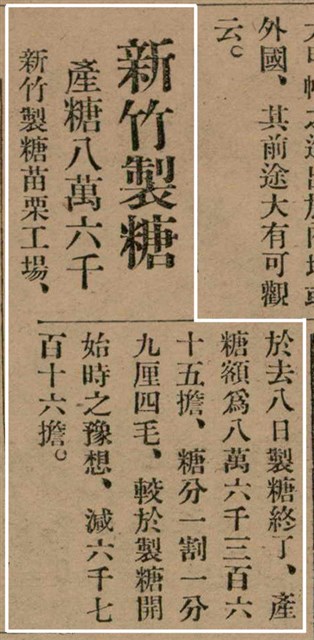 外國、其前途大有可觀
云。
新竹製糖
產糖八萬六千
新竹製糖苗栗工場、
於去八日製糖終了、產
糖額爲八萬六千三百六
十五擔、糖分一割一分
九厘四毛、較於製糖開
始時之豫想、減六千七
百十六擔。